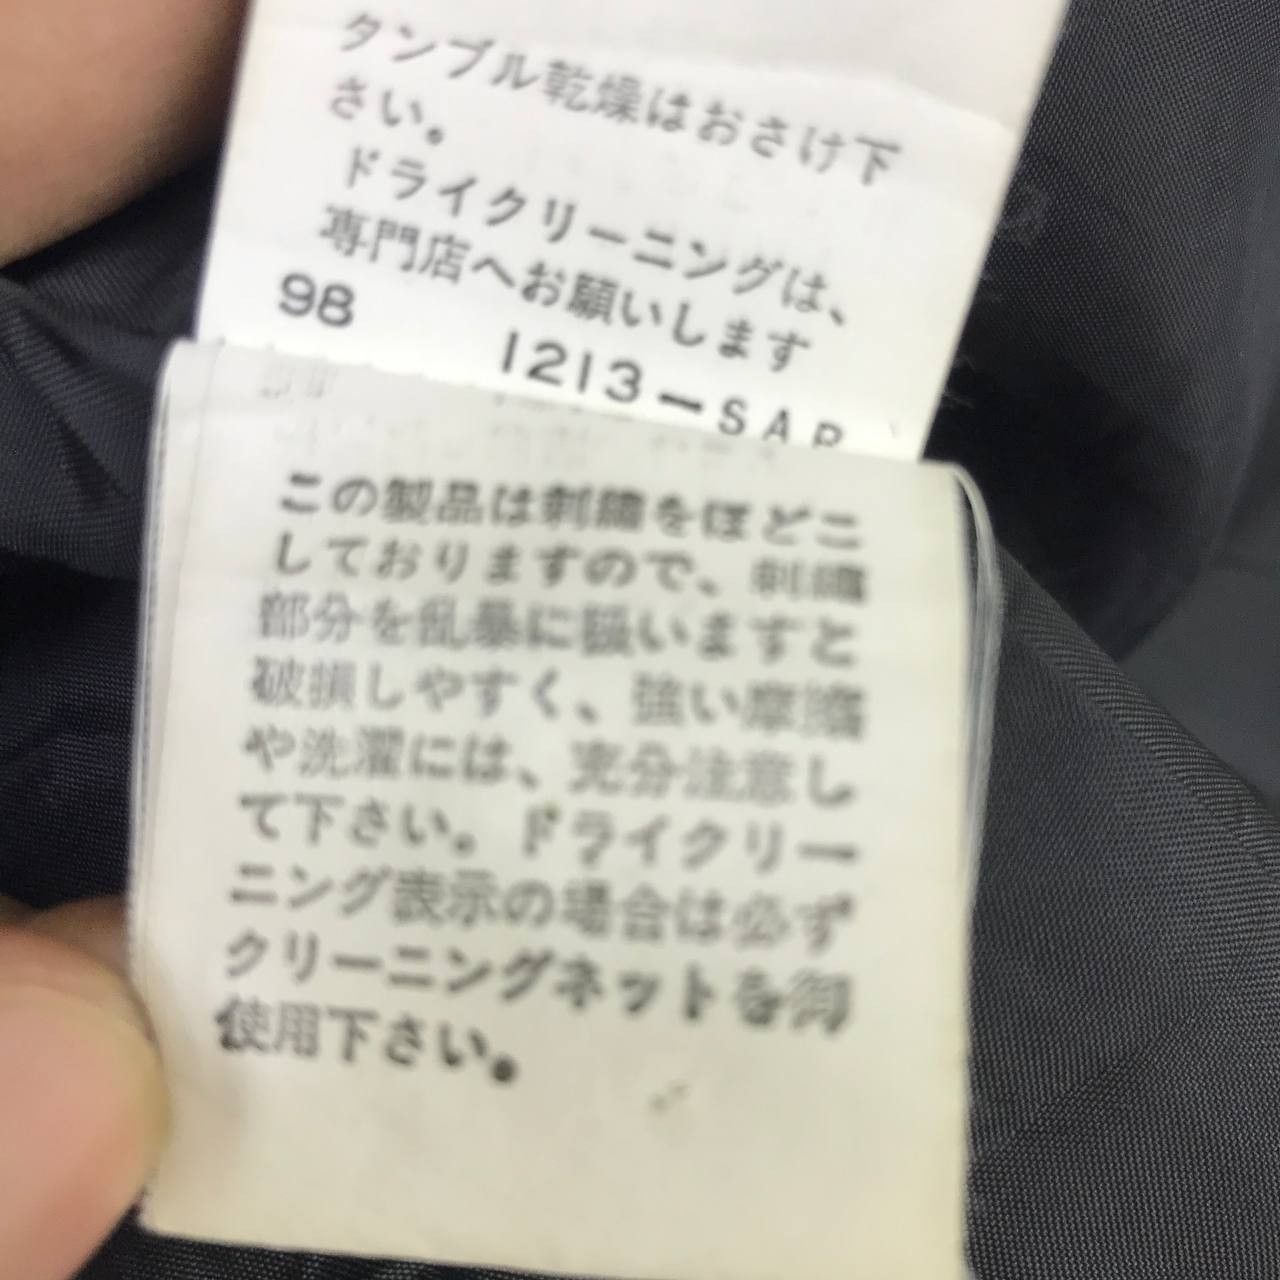 タンブル乾燥はおさけ下
さい。
ドライクリーニングは、
専門店へお願いします
98 1213-SAP
この製品は刺繍をほどこ
しておりますので、刺繍
部分を乱暴に扱いますと
破損しやすく、強い摩擦
や洗濯には、充分注意し
て下さい。ドライクリー
ニング表示の場合は必ず
クリーニングネットを御
使用下さい。